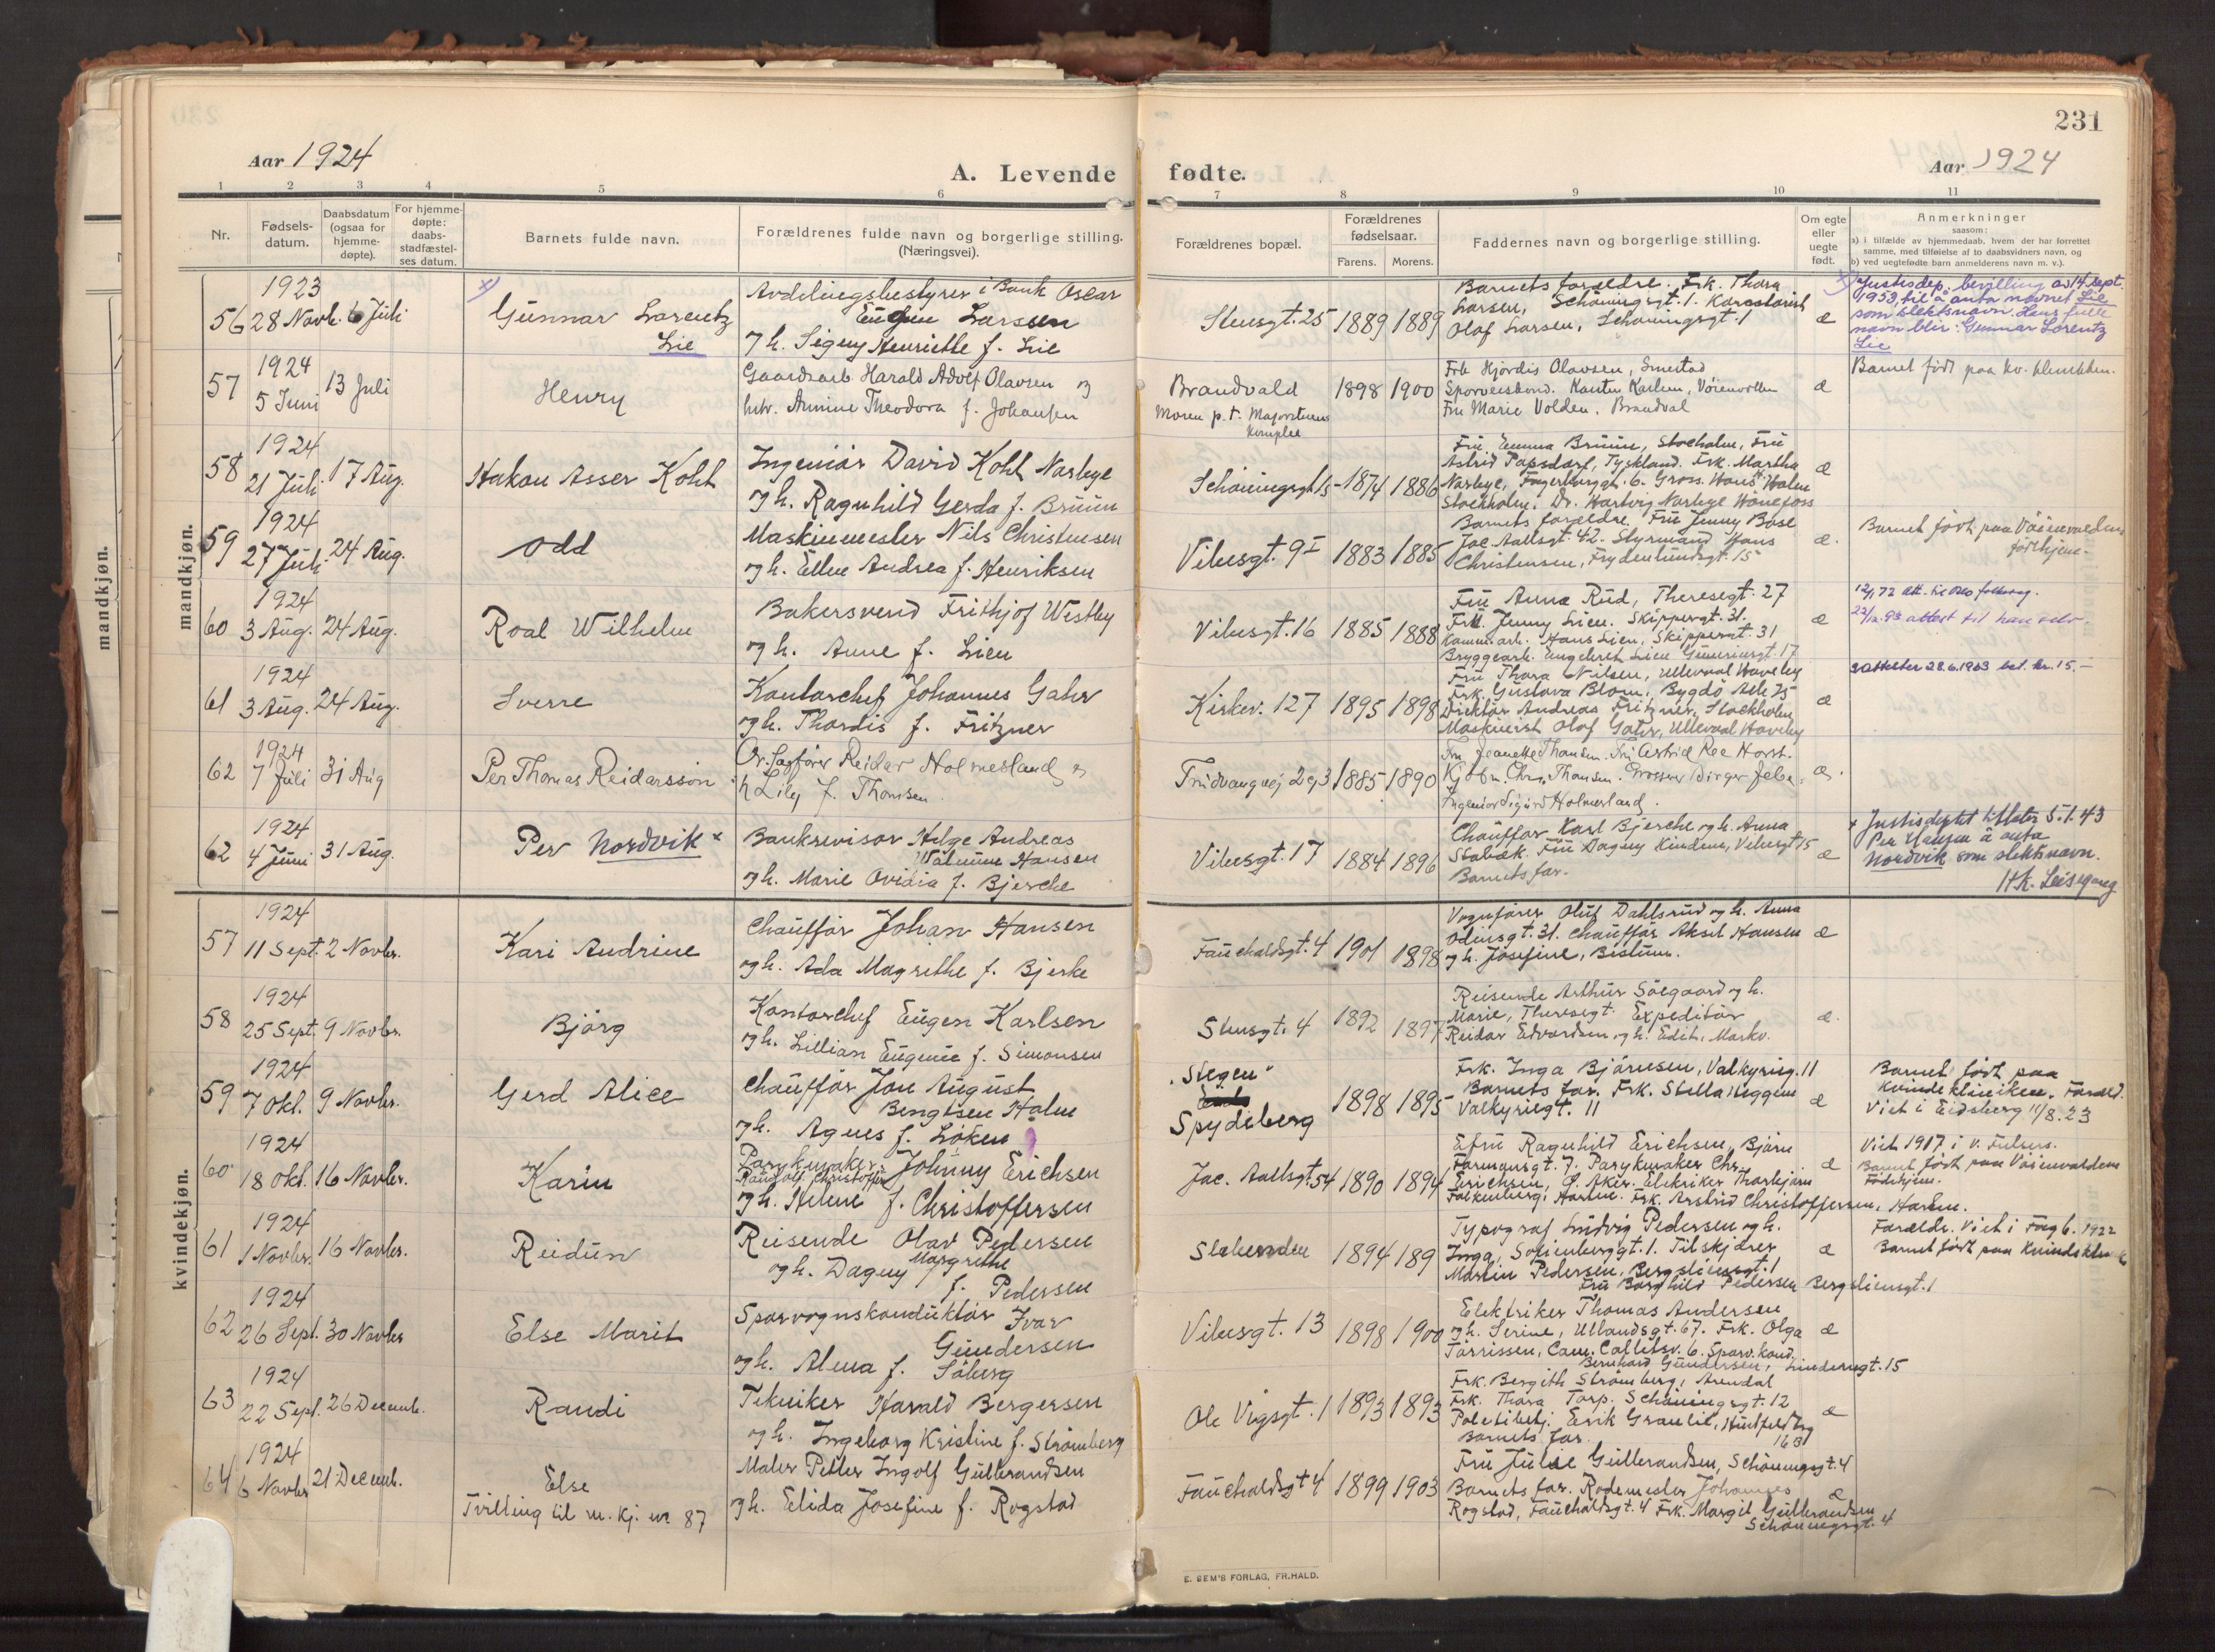 231
Aar 1924
A. Levende fødte.
Aar 1924
1 2 3 4 5 6 7 8 9 10 11
Nr.
Fødsels-
datum.
Daabsdatum
(ogsaa for
hjemme-
døpte).
For hjemme-
døpte:
daabs-
stadfæstel-
ses datum.
Barnets fulde navn.
Forældrenes fulde navn og borgerlige stilling.
(Næringsvei).
Forældrenes bopæl.
Forældrenes
fødselsaar.
Farens. Morens.
Faddernes navn og borgerlige stilling.
Om egte
eller
uegte
født.
Anmerkninger
saasom:
a) i tilfælde av hjemmedaab, hvem der har forrettet
samme, med tilføielse af to daabsvidners navn, og
b) ved uegtefødte barn anmelderens navn m. v.).
mandkjøn.
mandkjøn.
1923
56 28 Novb. 6 Juli
Gunnar Lorentz
Lie
Avdelingsbestyrer i Bank Oscar
Eugen Larssen
og h. Signy Henriette f. Lie
Stensgt. 25 1889 1889
Barnets forældre. Frk. Thora
Larsen, Schöningsgt. 1.
Olaf Larsen, Schöningsgt. 1
æ
Justisdep. bevilling av 14 sept.
1953, til å anta navnet Lie
som slektsnavn. Hans fulle
navn blir: Gunnar Lorentz
Lie
1924
57 5 Juni 13 Juli
Henry
Gaardsarb Harald Adolf Olavsen og
hstr. Annine Theodora f. Johansen
Brandvald
Moren p. t. Majorstuens
1898 1900
Frk Hjördis Olavsen, Smestad
Karsten Karlsen, Vöienvolden
Fru Marie Volden, Brandval
æ
Barnet födt paa kv. klinikken.
1924
58 21 Juli 17 Aug.
Hakon Asser Koht
Ingeniör David Koht Norbye
og h. Ragnhild Gerda f. Bruun
Schöningsgt 15 1874 1886
Fru Emma Bruun, Stockholm, Fru
Astrid Papsdorf, Tyskland. Frk. Martha
Norbye, Fagerborggt. 6. Gross. Hans Holm
Stockholm. Dr. Hartvig Norbye Hönefoss
æ
1924
59 27 Juli 24 Aug.
Odd
Maskinmester Nils Christensen
og h. Ellen Andrea f. Henriksen
Vibesgt. 9 I 1883 1885
Barnets forældre. Fru Jenny Bose
Jac. Aallsgt. 42. Styrmand Hans
Christensen, Frydenlundsgt. 15
æ.
Barnet födt paa Vöienvoldens
födehjem.
1924
60 3 Aug. 24 Aug.
Roal Wilhelm
Bakersvend Frithjof Westby
og h. Anne f. Lien
Vibesgt. 16 1885 1888
Fru Anna Rud, Theresegt. 27
Frk. Jenny Lien. Skippergt. 31.
Hans Lien, Skippergt. 31
Bryggearb. Engebret Lien 17
æ
12/1 72 att. til Oslo folkereg.
attest til han selv.
1924
61 3 Aug. 24 Aug.
Sverre
Kontorchef Johannes Gahr
og h. Thordis f. Fritzner
Kirkev. 127 1895 1898
Fru Thora Nilsen, Ullevaal Haveby
Frk. Gustava Blom, Bygdö Alle 75
Direktör Andreas Fritzner, Stockholm
Maskinist Olaf Gahr, Ullevaal Haveby
æ
2 attester 28.6.1963 bet. kr. 15.-
1924
62 7 Juli 31 Aug
Per Thomas Reidarsson
Or.Sagförer Reidar Holmesland og
h Lily f. Thomsen
Tuidvangvej 2 og 3 1885 1890
Fru Jeanette Thomsen. Fru Astrid Ree Horst.
Kjöbm. Chr. Thomsen. Grosserer Birger Jebe.
Ingeniör Sigurd Holmesland.
æ.
1924
62 4 Juni 31 Aug.
Per Nordvik x
Bankrevisor Helge Andreas
Hansen
og h. Marie Ovidia f. Bjerche
Vibesgt. 17 1884 1896
Chaufför Karl Bjerche og h. Anna
Stabæk. Fru Dagny Kindem, Vibesgt 15
Barnets far.
æ
x Justisdeptet tillater 5.1.43
Per Hansen å anta
Nordvik som slektsnavn.
kvindekjøn.
1924
57 11 Sept. 2 Novbr.
Kari Andrine
Chaufför Johan Hansen
og h. Ada Magrethe f. Bjerke
Fauchaldsgt. 4 1901 1898
Vognförer Oluf Dahlsrud og h. Anna
Odinsgt. 31. Chaufför Aksel Hansen
og h. Josefine, Bestum.
æ
1924
58 25 Sept. 9 Novbr.
Björg
Kontorchef Eugen Karlsen
og h. Lillian Eugenie f. Simonsen
Stensgt. 4 1892 1897
Reisende Arthur Söegaard og h.
Marie, Theresegt. Expeditör
Reidar Edvardsen og h. Edit, Markv.
æ.
1924
59 7 Okt. 9 Novbr.
Gerd Alice
Chaufför Jon August
Bengtsen Holm
og h. Agnes f. Löken
"Stegen"
Spydeberg
1898 1895
Frk. Inga Björnesen, Valkyrieg. 11
Barnets far. Frk. Stella Heggem
Valkyriegt. 11
æ
Barnet födt paa
Kvindeklinikken. Foræld.
Viet i Eidsberg 11/8. 23
1924
60 18 Okt. 16 Novbr.
Karin
Parykmaker Johnny Erichsen
Randolf Christoffer
og h. Helene f. Christoffersen
Jac. Aallsgt. 54 1890 1894
Efru Ragnhild Erichsen, Björn
Farmannsgt. 7. Parykmaker Chr.
Erichsen, Ö. Aker. Elektriker Thorbjörn
Falkenberg, Horten. Frk. Astrid Christoffersen, Horten.
æ
Viet 1917 i
Barnet födt paa Vöienvoldens
Födehjem.
1924
61 1 Novbr. 16 Novbr.
Reidun
Reisende Olav Pedersen
og h. Dagny Margrethe
f. Pedersen
Slabendu 1894 189
Typograf Ludvig Pedersen og h.
Inga, Sofienberggt. 1. Tilskjærer
Martin Pedersen, Bergsliensgt. 1
Fru Borghild Pedersen Bergsliensgt. 1
æ
Foreldr. Viet i 1922
Barnet födt paa
1924
62 26 Sept. 30 Novbr
Else Marit
Sporvognskonduktör Ivar
Gundersen
og h. Alma f. Söberg
Vibesgt. 13 1898 1900
Elektriker Thomas Andersen
og h. Serine, Ullandsgt. 67. Frk. Olga
Törrissen, Cam. Colletsv. 6. Sporv. kond.
Bernhard Gundersen, Lindernsgt. 15
æ
1924
63 22 Sept. 26 Decemb.
Randi
Tekniker Harald Bergersen
og h. Ingeborg Kristine f. Strömberg
Ole Vigsgt. 1 1893 1893
Frk. Bergith Strömberg, Arendal
Frk. Thora Torp. Schöningsgt. 12
Politibetj. Erik Granlie, Huitfeldtsg
Barnets far. 16
æ
1924
64 6 Novbr 21 Decemb.
Else
Tvilling til m. kj. nr 87
Maler Petter Ingolf Gulbrandsen
og h. Elida Josefine f. Rogstad
Fauchaldsgt 4 1899 1903
Fru Julie Gulbrandsen, Schöningsgt. 4
Barnets far. Rodemester Johannes
Rogstad, Fauchaldsgt. 4 Frk. Margit Gulbrandsen
Schöningsgt. 4
æ
E. SEM'S FORLAG, FR.HALD.